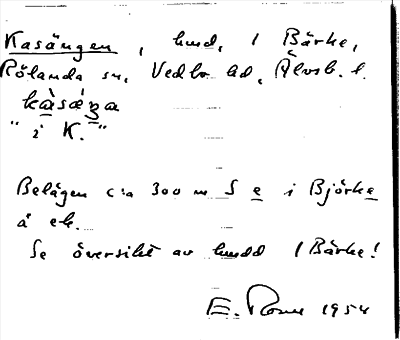 Kasängen, hmd, 1 Bärke,
Rölanda sn, Vedbo hd, Älvsb. l.
kàsǽŋa
"i K."
Belägen c:a 300 m S e i Björke
å ek.
Se översikt av hmdd 1 Bärke!
E. 1954